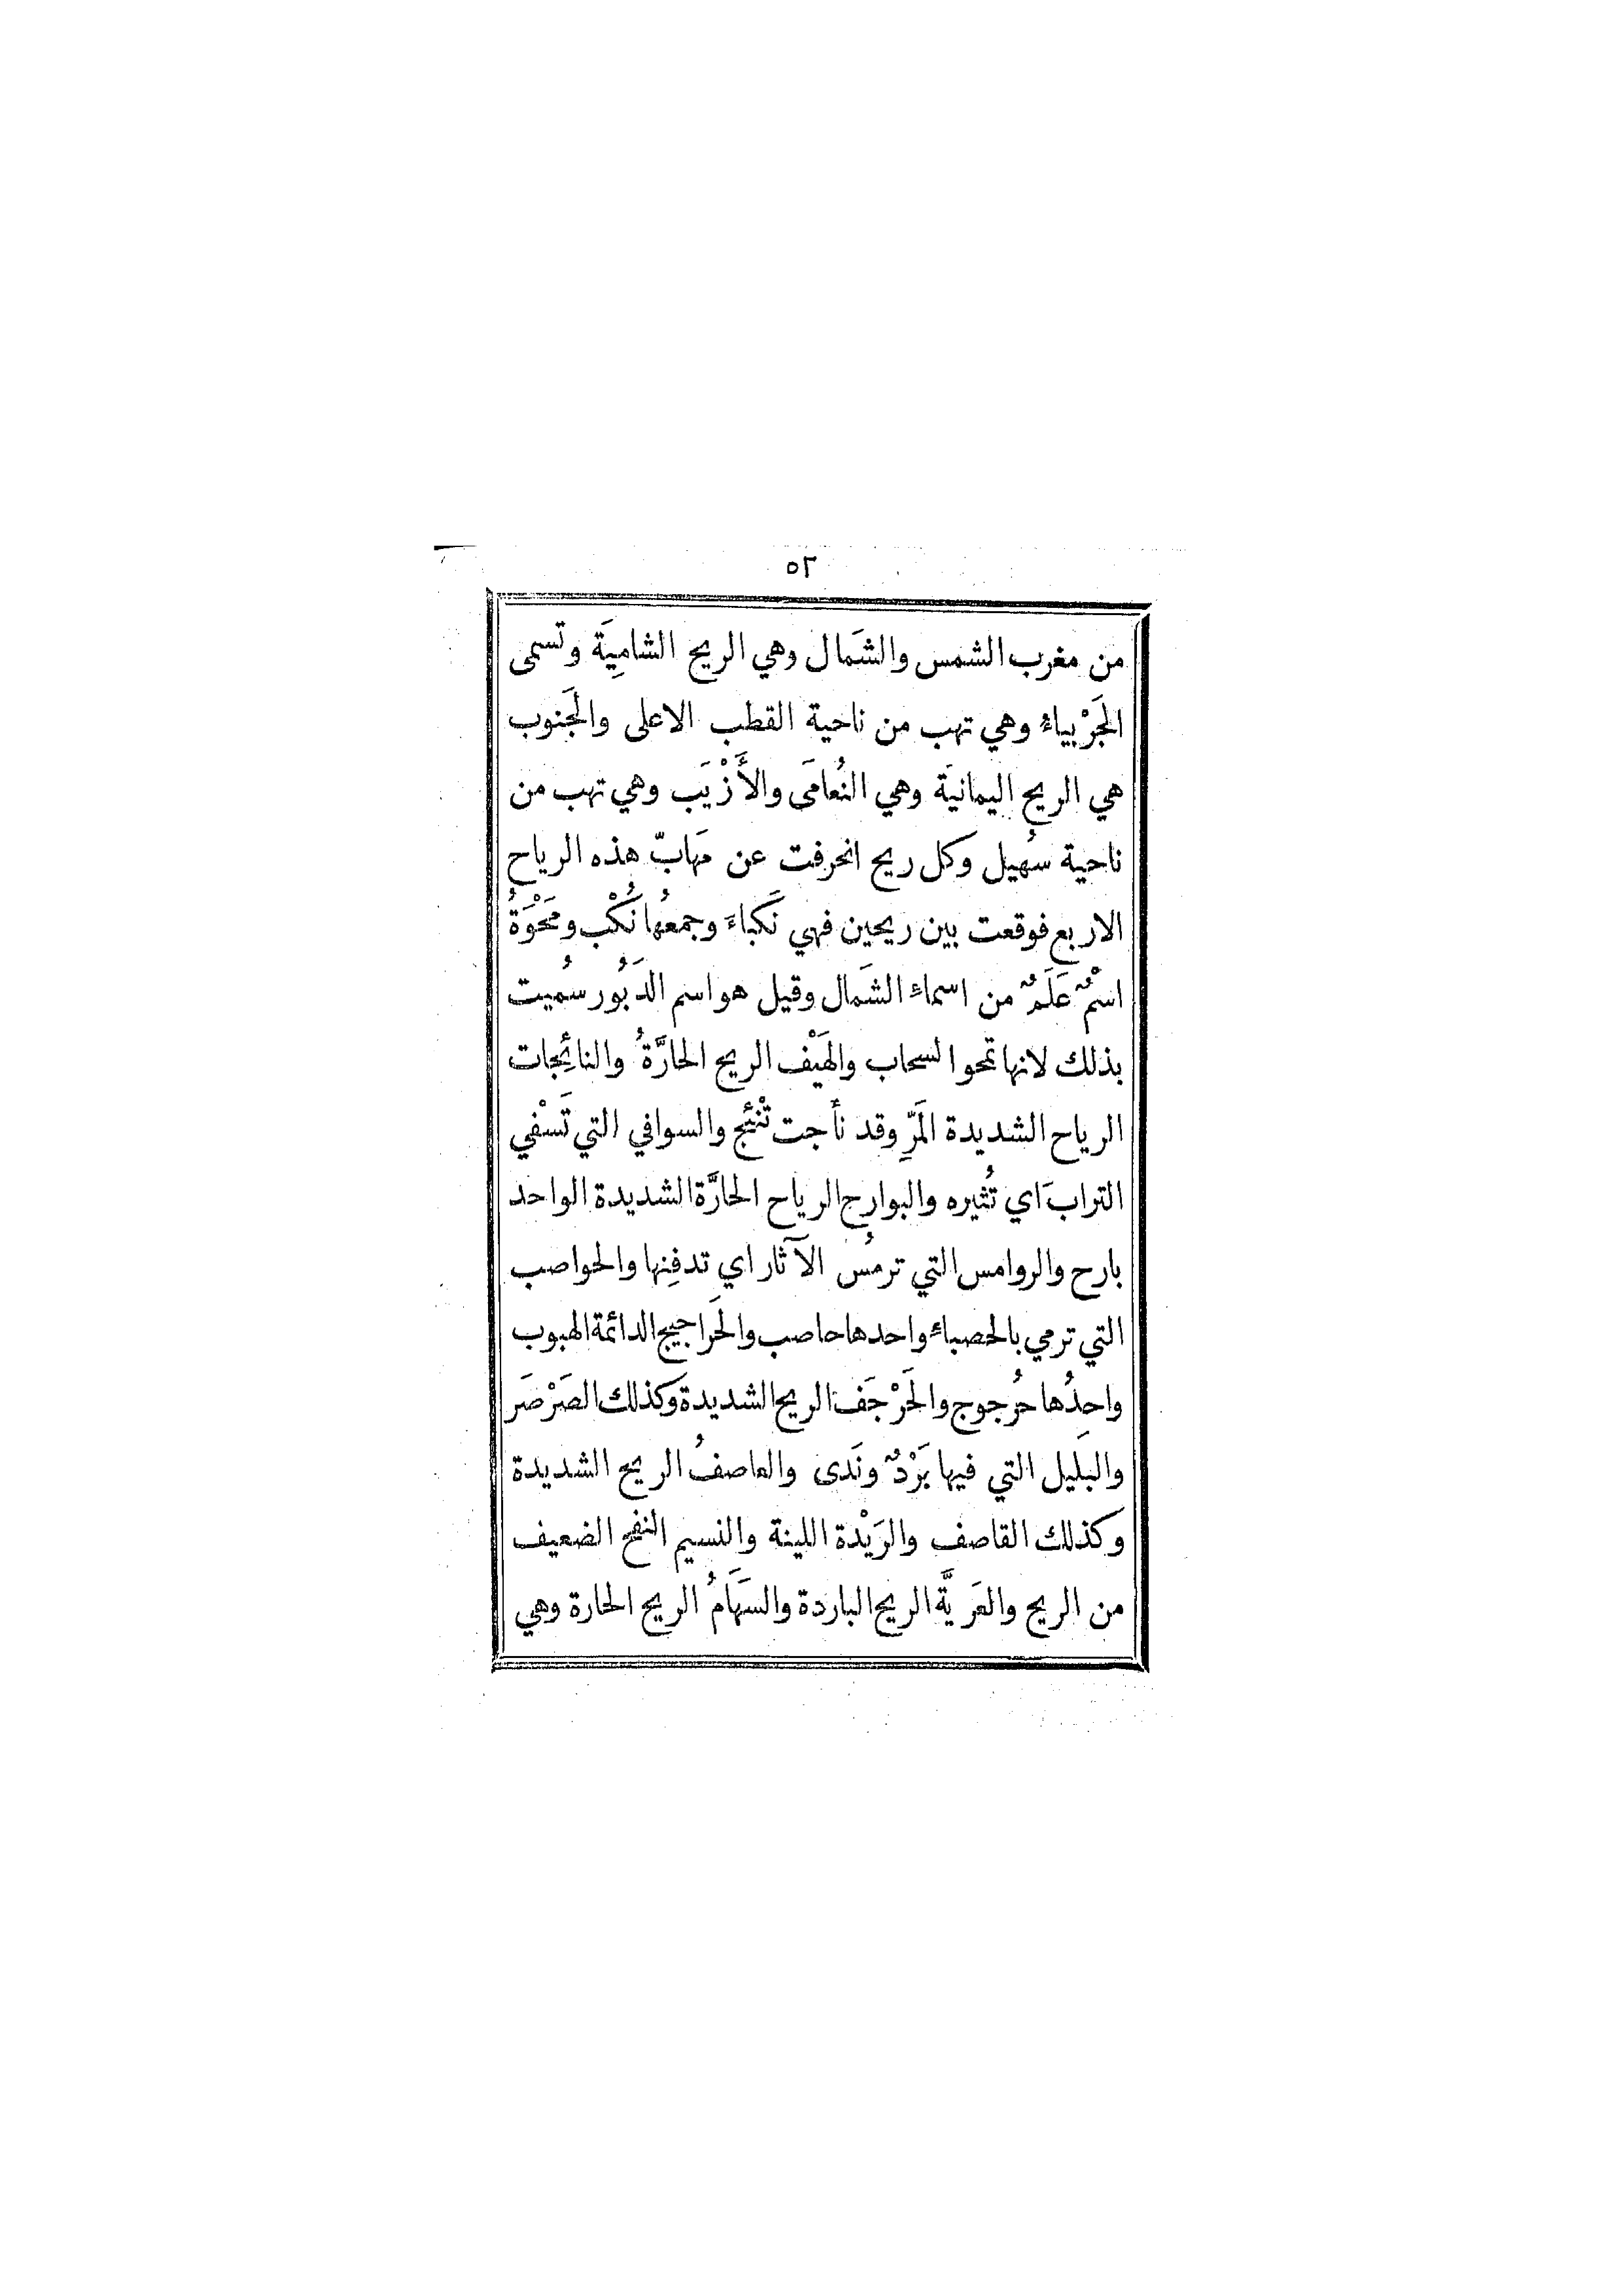 ٥٢
من مغرب الشمس والشَمال وهي الريح الشامِيَة وتسمى
الجَرْبياءُ وهي تهب من ناحية القطب الاعلى والجَنوب
هي الريح اليمانيَة وهي النُعامَى والأَزْيَب وهي تهب من
ناحية سُهيل وكل ريح انحرفت عن مَهابّ هذه الرياح
الاربع فوقعت بين ريحين فهي نَكباءَ وجمعُها نُكْب ومَحْوَةُ
اسْمٌ عَلَمٌ من اسماء الشَمال وقيل هو اسم الدَبُور سُميت
بذلك لانها تمحو السحاب والهَيْف الريح الحارَّةُ والنائِجات
الرياح الشديدة المَرِّ وقد نأجت تْنئج والسوافي التي تَسْفي
الترابَ اي تُثيره والبوارح الرياح الحارَّة الشديدة الواحد
بارح والروامس التي ترمُس الآثار اي تدفِنها والحواصب
التي ترمي بالحصباء واحدها حاصب والحَراجيج الدائمة الهبوب
واحِدُها حُرجوج والحَرْجَف الريح الشديدة وَكذلك الصَرْصَر
والبَلِيل التي فيها بَرْدٌ ونَدى والعاصفُ الريح الشديدة
وكذلك القاصف والرَيْدة اللينة والنسيم النفح الضعيف
من الريح والعَرِيَّة الريح الباردة والسَهَامُ الريح الحارة وهي